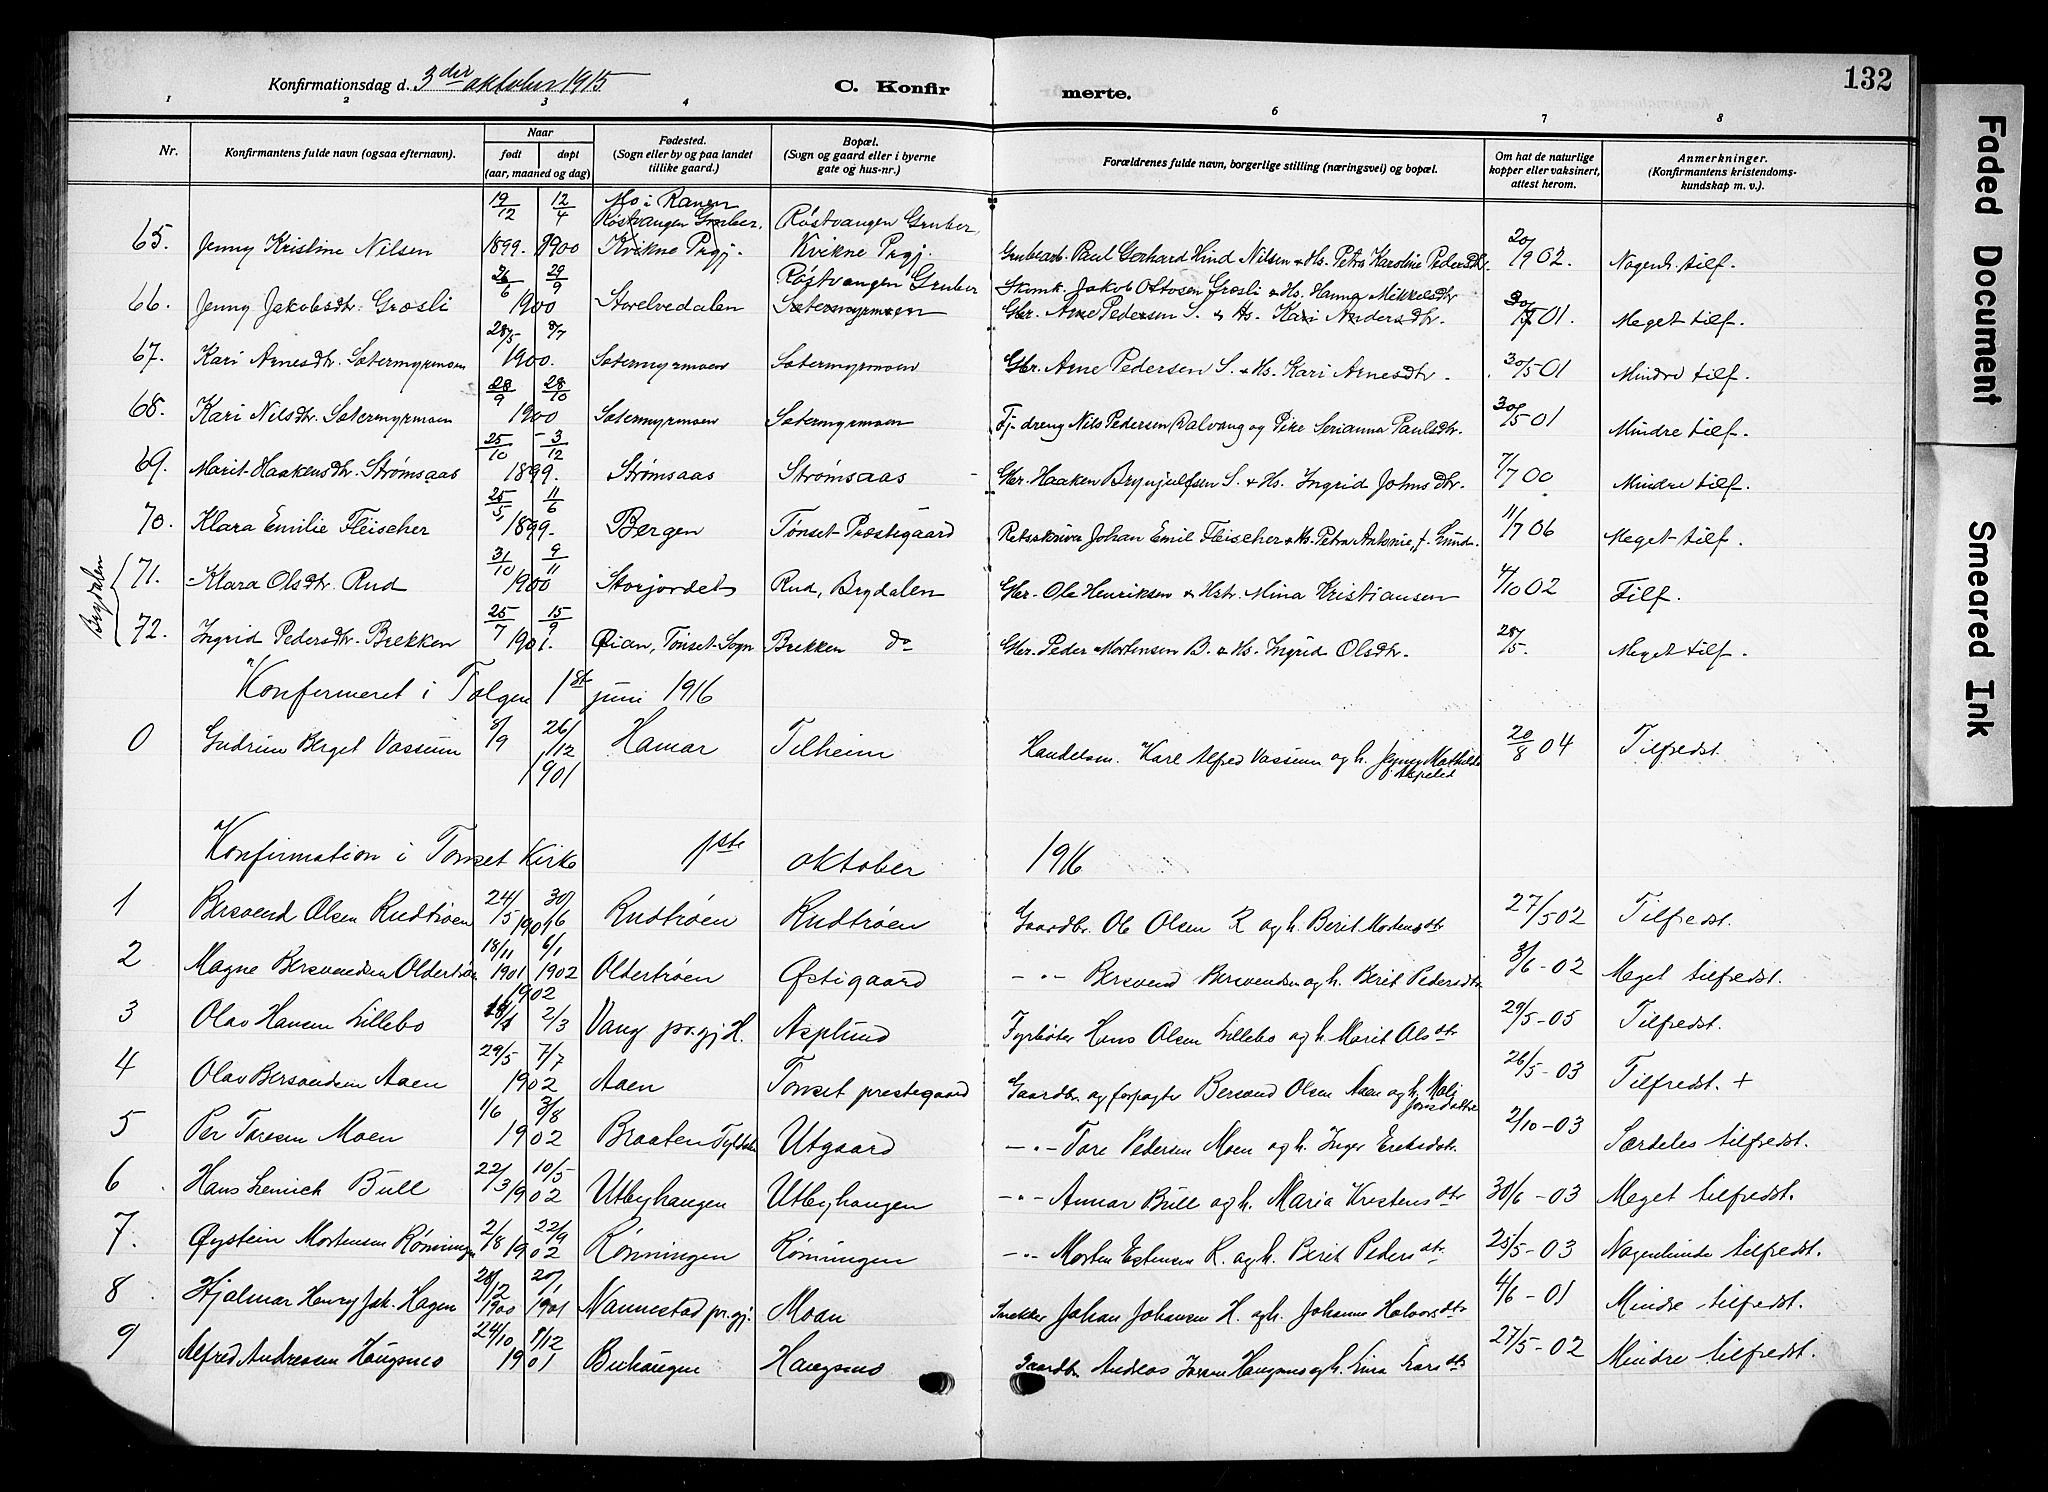 Konfirmationsdag d. 3die oktober 1915
C. Konfir merte.
132
1 2 3 4 6 7 8
Nr. Konfirmantens fulde navn (ogsaa efternavn). Naar født døpt (aar, maaned og dag) Fødested. (Sogn eller by og paa landet tillike gaard.) Bopæl. (Sogn og gaard eller i byerne gate og hus-nr.) Forældrenes fulde navn, borgerlige stilling (næringsvei) og bopæl. Om hat de naturlige kopper eller vaksinert, attest herom. Anmerkninger. (Konfirmantens kristendoms- kundskap m. v.).
19/12 12/4 Mo i Ranen
Røstvangen Gruber, Røstvangen Gruber,
65. Jenny Kristine Nilsen 1899. 1900 Kvikne Prgj. Kvikne Prgj. Grubearb. Paul Gerhard Hind Nilsen & Hs. Petra Karoline Pedersdtr. 20/9 02. Nogenl. tilf.
26/6 29/9 Røstvangen Gruber Skomk. Jakob Olsen Græsli & Hs. Hanna Mikkelsdtr
66. Jenny Jakobsdtr. Græsli 1900 Storelvedalen Sætermyrmoen Gbr. Arne Pedersen S. & Hs. Kari Andersdtr. 01. Meget tilf.
28/5 8/7
67. Kari Arnesdtr. Sætermyrmoen 1900. Sætermyrmoen Sætermyrmoen Gbr. Arne Pedersen S. & Hs. Kari Arnesdtr. 30/5 01 Mindre tilf.
28/9 28/10
68. Kari Nilsdtr. Sætermyrmoen 1900 Sætermyrmoen Sætermyrmoen Tj. dreng Nils Pedersen Dalvang og Pike Serianna Paulsdtr. 30/5 01 Mindre tilf.
25/10 3/12
69. Marit Haakensdtr. Strømsaas 1899. Strømsaas Strømsaas Gbr. Haaken Brynjulfsen S. & Hs. Ingrid Johnsdtr. 7/7 00 Mindre tilf.
25/5 11/6
70. Klara Emilie Fleischer 1899. Bergen Tønset Præstegaard Retsskriver Johan Emil Fleischer & Hs. Petra Antonie, f. Lund. 11/7 06 Meget tilf.
Brydalen
31/10 9/11
71. Klara Olsdtr. Rud 1900 Storjordet Rud, Brydalen Gbr. Ole Henriksen & Hstr. Mina Kristiansen 4/10 02 Tilf.
25/7 15/9
72. Ingrid Pedersdtr. Brekken 1901. Øian, Tønset Sogn Brekken do Gbr. Peder Mortensen B. & Hs. Ingrid Olsdtr. 28/5. Meget tilf.
Konfirmeret i Tolgen 1ste juni 1916
0 Gudrun Berget Vassum 8/9 26/12 1901 Hamar Telheim Handelsm. Karl Alfred Vassum og h. Jenny Mathilde 20/8 04 Tilfredst.
Konfirmation i Tønset Kirke 1ste oktober 1916
1 Bersvend Olsen Rudtrøen 24/5 30/6 1901 Rudtrøen Rudtrøen Gaardbr. Ole Olsen R og h. Berit Mortensdtr 27/5 02 Tilfredst.
2 Magne Bersvendsen Oldertrøen 18/11 1901 6/1 1902 Oldertrøen Østigaard -"- Bersvend Bersvendsen og h. Berit Pedersdtr 3/6 - 02 Meget tilfredst.
1902
3 Olav Hansen Lillebo 2/3 Vang pr.gj. H. Asplund Fyrbøter Hans Olsen Lillebo og h. Marit Olsdtr 29/5 - 05 Tilfredst.
4 Olav Bersvendsen Aaen 29/5 7/7 1902 Aaen Tønset prestegaard Gaardbr. og forpagter Bersvend Olsen Aaen og h. Mali Jonsdatter 26/5 - 03 Tilfredst. +
5 Per Toresen Moen 1/6 3/8 1902 Braaten Tyldalen Utgaard -"- Tore Pedersen Moen og h. Inger Eriksdtr. 2/10 - 03 Særdeles tilfredst.
6 Hans Henrich Bull 22/3 10/5 1902 Utbyhaugen Utbyhaugen -"- Annar Bull og h. Maria Kristensdtr 30/6 - 03 Meget tilfredst.
7. Øystein Mortensen Rønningen 2/8 22/9 1902 Rønningen Rønningen -"- Morten Estensen R. og h. Berit Pedersdtr 25/5 - 03 Nogenlunde tilfredst.
8 Hjalmar Henry Joh. Hagen 28/12 1900 20/1 1901 Nannestad pr.gj. Moan Snekker Johan Johansen H. og h. Johanne Halvorsdtr 4/6 - 01 Mindre tilfredst.
9 Alfred Andreasen Haugsmo 24/10 8/12 1901 Buhaugen Haugsmo Gaardbr. Andreas Haugsmo og h. Lina Larsdtr 27/5 - 02 Mindre tilfredst.
Faded Document
Smeared Ink